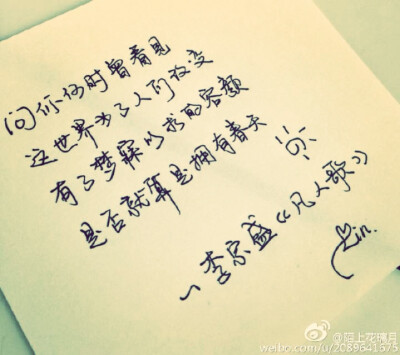 问你何时曾看见
这世界为了人们改变
有了梦寐以求的容颜
是否就算是拥有春天
—李宗盛《凡人歌》
@陌上花擒月
weibo.com/u/2089641575